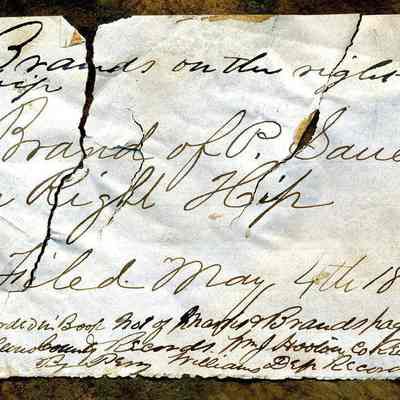 Brands on the right
Hip
Brand of P. Saue
Right Hip
Filed May 4th 18
in Book No 1 of Marks & Brands pag
County Records Wm J Hooton Co Re
By Perry Williams Dep Record